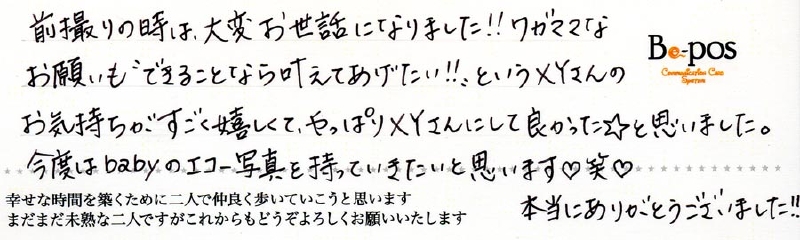 前撮りの時は、大変お世話になりました!! ワガママな
お願いも"できることなら叶えてあげたい!!"というXYさんの
お気持ちがすごく嬉しくて、やっぱりXYさんにして良かった☆と思いました。
今度はbabyのエコー写真を持っていきたいと思います♡笑♡
本当にありがとうございました!!
Be-pos
Communication Care
System
幸せな時間を築くために二人で仲良く歩いていこうと思います
まだまだ未熟な二人ですがこれからもどうぞよろしくお願いいたします